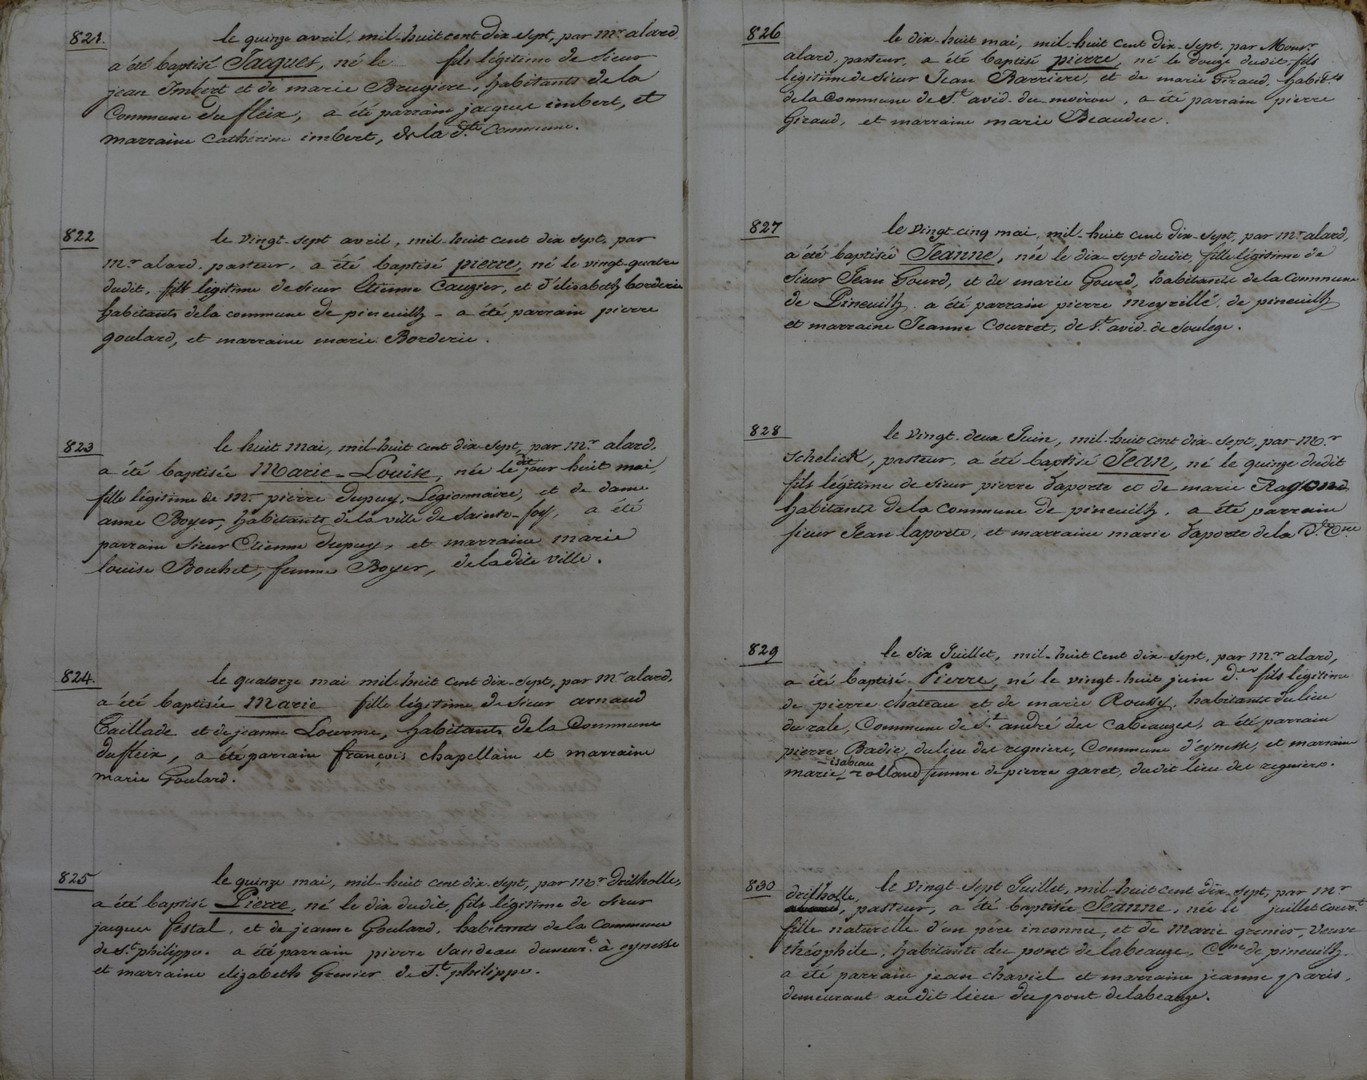 821. le quinze avril, mil-huit cent dix-sept, par mr. alard,
a été baptisé Jacques, né le fils légitime de sieur
jean Imbert et de marie Brugiere, habitants de la
Commune du fleix, a été parrain jacques imbert, et
marraine Catherine imbert, de la d.te Commune.
822 le vingt-sept avril, mil-huit cent dix sept, par
mr. alard, pasteur, a été baptisé pierre, né le vingt-quatre
dudit, fils légitime de sieur Etienne Cauzier, et d'élisabeth borderie
habitants de la commune de pineuilh - a été parrain pierre
goulard, et marraine marie Borderie.
823 le huit mai, mil-huit cent dix-sept, par mr. alard,
a été baptisée Marie-Louise, née le dit jour huit mai,
fille légitime de mr. pierre Dupuy, Légionnaire, et de dame
anne Boyer, habitants de la ville de Sainte-foy, a été
parrain sieur Etienne dupuy, et marraine marie
louise Bouhet, femme Boyer, de la dite ville.
824. le quatorze mai mil-huit cent dix-sept, par mr. alard,
a été baptisée Marie fille légitime de sieur arnaud
Taillade et de jeanne Lourme, habitants de la Commune
du fleix, a été parrain francois chapellain et marraine
marie Goulard.
825 le quinze mai, mil-huit cent dix-sept, par mr. drilholle,
a été baptisé Pierre, né le dix dudit, fils légitime de sieur
jacques festal, et de jeanne Goulard, habitants de la Commune
de St. philippe. a été parrain pierre Sandeau demeurt. à eynesse
et marraine elizabeth Grenier de St. philippe.
826 le dix-huit mai, mil-huit cent dix-sept, par Monsr.
alard, pasteur, a été baptisé pierre, né le douze dudit, fils
légitime de sieur Jean Barriere, et de marie Giraud, habitts
de la Commune de St. avid du moiron, a été parrain pierre
Giraud, et marraine marie Beauduc.
827 le vingt-cinq mai, mil-huit cent dix-sept, par mr. alard,
a été baptisée Jeanne, née le dix-sept dudit, fille légitime de
sieur Jean Gourd, et de marie Gourd, habitants de la Commune
de Pineuilh, a été parrain pierre meyrillé, de pineuilh
et marraine Jeanne Courret, de St. avid de Soulege.
828 le vingt-deux Juin, mil-huit cent dix-sept, par Mr.
Schelick, pasteur, a été baptisé Jean, né le quinze dudit
fils légitime de sieur pierre Laporte et de marie Ragond
habitants de la commune de pineuilh, a été parrain
sieur Jean laporte, et marraine marie Laporte de la d.te C.ne
829 le six Juillet, mil-huit cent dix-sept, par mr. alard,
a été baptisé Pierre, né le vingt-huit juin d.er fils légitime
de pierre chateau et de marie Roussy, habitants du lieu
du rale, Commune de St. andré de Cabeauzes, a été parrain
pierre Badie, du lieu des regniers, Commune d'eynesse, et marraine
marie-isabeau rolland femme de pierre garet, dudit lieu des regniers.
830 le vingt-sept Juillet, mil-huit cent dix-sept, par mr.
drilholle, pasteur, a été baptisée Jeanne, née le juillet court.
fille naturelle d'un père inconnu, et de Marie grenier, veuve
théophile, habitants du pont de labeauze, Cne de pineuilh.
a été parrain jean chaviel et marraine jeanne paris,
demeurant au dit lieu du pont de labeauze.